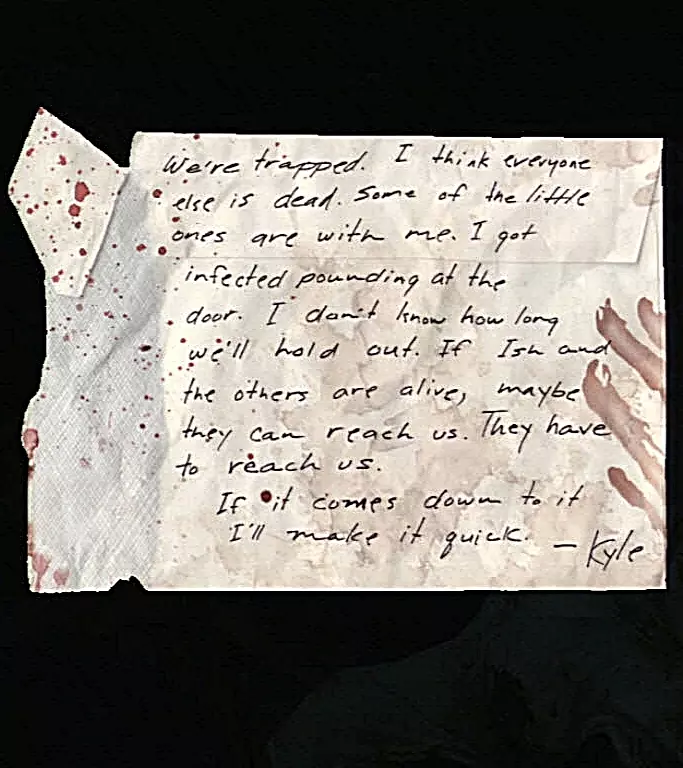 We're trapped. I think everyone
else is dead. Some of the little
ones are with me. I got
infected pounding at the
door. I don't know how long
we'll hold out. If Ish and
the others are alive, maybe
they can reach us. They have
to reach us.
If it comes down to it
I'll make it quick. – Kyle